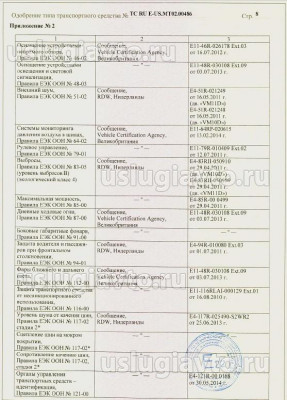 Одобрение типа транспортного средства № ТС RU E-US.МТ02.00486 Стр. 8
Приложение № 2
1 2 3
Оснащение устройствами непрямого обзора, Правила ЕЭК ООН № 46-02
Сообщение, Vehicle Certification Agency, Великобритания
E11-46R-026178 Ext.03 от 16.07.2012 г.
Оснащение устройствами освещения и световой сигнализации, Правила ЕЭК ООН № 48-03
—"—
E11-48R-030108 Ext.09 от 03.07.2013 г.
Внешний шум, Правила ЕЭК ООН № 51-02
Сообщение, RDW, Нидерланды
E4-51R-021249 от 16.05.2011 г.
E4-51R-021248 от 16.05.2011 г.
Системы мониторинга давления воздуха в шинах, Правила ЕЭК ООН № 64-02
Сообщение, Vehicle Certification Agency, Великобритания
Рулевое управление, Правила ЕЭК ООН № 79-01
—"—
E11-79R-010409 Ext.02 от 12.07.2011 г.
Выбросы, Правила ЕЭК ООН № 83-05 (уровень выбросов В) (экологический класс 4)
Сообщение, RDW, Нидерланды
от 29.04.2011 г.
от 29.04.2011 г.
Максимальная мощность, Правила ЕЭК ООН № 85-00
—"—
E4-85R-00 0499 от 29.04.2011 г.
Дневные ходовые огни, Правила ЕЭК ООН № 87-00
Сообщение, Vehicle Certification Agency, Великобритания
E11-48R-030108 Ext.09 от 03.07.2013 г.
Боковые габаритные фонари, Правила ЕЭК ООН № 91-00
—"—
—"—
Защита водителя и пассажиров при фронтальном столкновении, Правила ЕЭК ООН № 94-01
Сообщение, RDW, Нидерланды
E4-94R-010088 Ext.03 от 01.07.2011 г.
Фары ближнего и дальнего света, Правила ЕЭК ООН № 112-00
Сообщение, Vehicle Certification Agency, Великобритания
E11-48R-030108 Ext.09 от 03.07.2013 г.
Защита транспортного средства от несанкционированного использования, Правила ЕЭК ООН № 116-00
—"—
E11-116RLAI-000129 Ext.01 от 16.08.2010 г.
Уровень шума от качения шин, Правила ЕЭК ООН № 117-02 стадия 2*
Сообщение, RDW, Нидерланды
E4-117R-025490-S2WR2 от 25.06.2013 г.
Сцепление шин на мокром покрытии, Правила ЕЭК ООН № 117-02*
—"—
Сопротивление качению шин, Правила ЕЭК ООН № 117-02 стадия 2*
—"—
Органы управления транспортных средств – идентификация, Правила ЕЭК ООН № 121-00
—"—
от 30.05.2014 г.
uslugiavto.ru
uslugiavto.ru
uslugiavto.ru